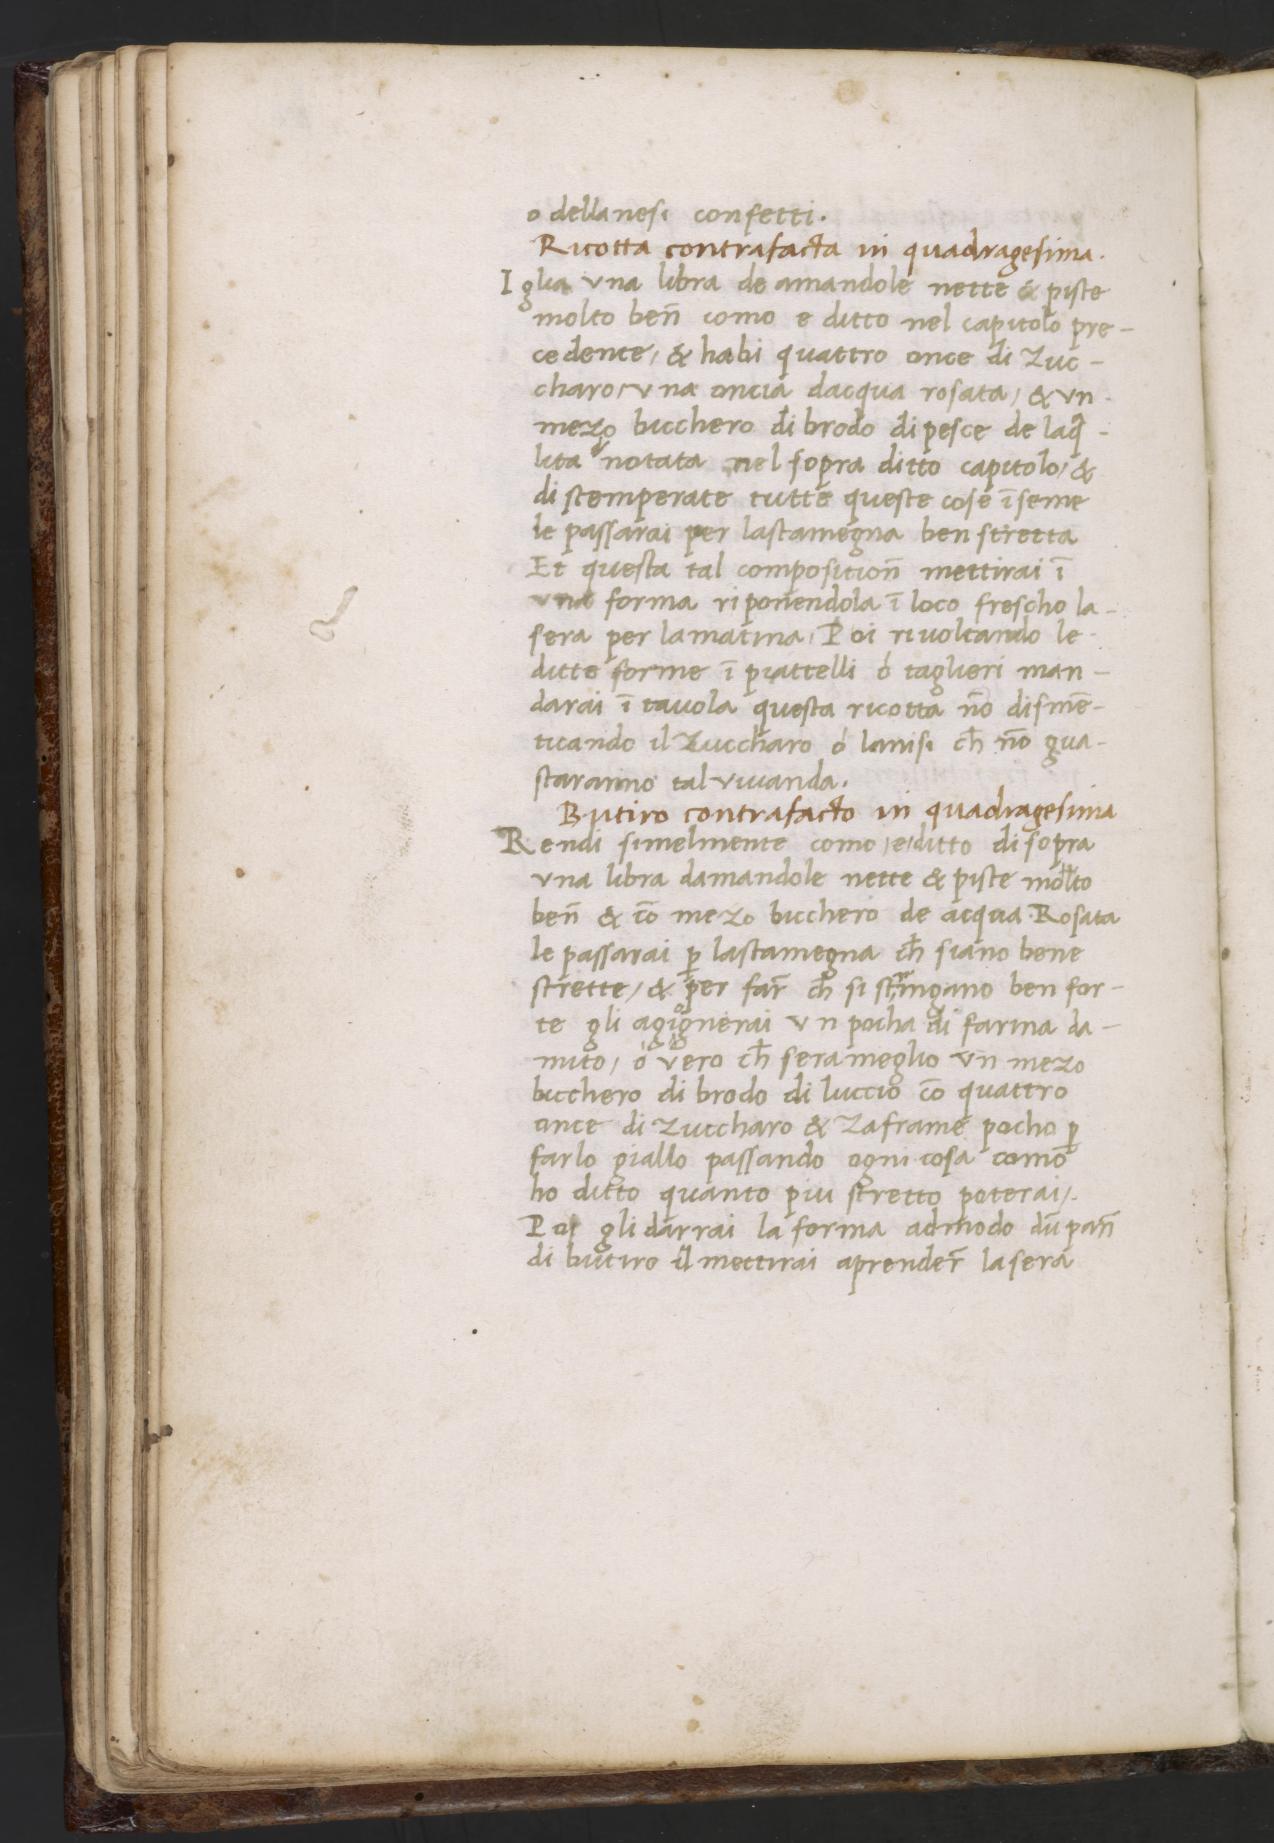 o dellanesi confetti.
Ricotta contrafacta in quadragesima.
Iglia una libra de amandole nette & piste
molto beñ como e ditto nel capitolo pre-
cedente, & habi quattro once di Zuc-
charo, una oncia dacqua rosata, & un
mezo bicchero di brodo di pesce de la q̃-
lita notata nel sopra ditto capitolo, &
distemperate tutte queste cose ĩseme
le passarai per lastamegna ben stretta
Et questa tal compositioñ mettirai ĩ
una forma riponendola ĩ loco frescho la-
sera per la matina, Poi rivoltando le-
ditte forme ĩ piattelli ó taglieri man-
darai ĩ tavola questa ricotta nõ dismẽ-
ticando il Zuccharo ó lanisi ch̃ nõ gua-
staranno tal vivanda.
Butiro contrafacto in quadragesima
Rendi simelmente como, e, ditto di sopra
una libra damandole nette & piste molto
beñ & cõ mezo bicchero de acqua Rosata
le passarai ꝑ lastamegna ch̃ siano bene
strette, & per far̃ ch̃ si stringano ben for-
te gli agiognerai un pocha di farina da-
mito, ó vero ch̃ sera meglio un mezo
bicchero di brodo di luccio cõ quattro
once di Zuccharo & Zaframe pocho ꝑ
farlo giallo passando ogni cosa como
ho ditto quanto piu stretto poterai,.
Poi gli darrai la forma admodo dũ pañ
di butiro il mettirai aprender̃ la sera